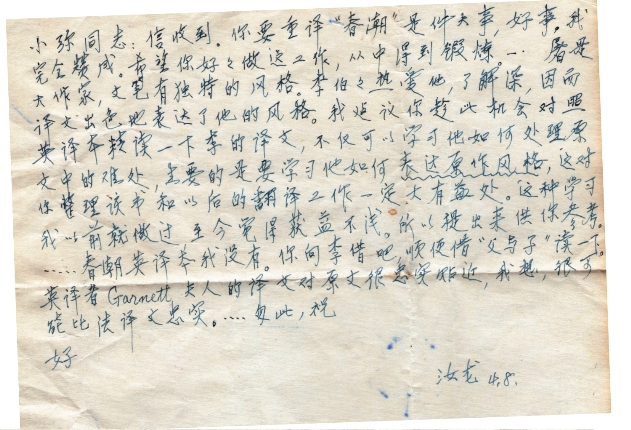 小弥同志：信收到。你要重译"春潮"是件大事，好事。我
完全赞成。希望你好々做这工作，从中得到锻炼… 屠是
大作家，文笔有独特的风格。李伯々热爱他，了解深，因而
译文出色地表达了他的风格。我建议你趁此机会对照
英译本精读一下李的译文，不仅可以学习他如何处理原
文中的难处，主要的是要学习他如何表达原作风格，这对
你整理读书和以后的翻译工作一定大有益处。这种学习
我以前就做过至今觉得获益不浅。所以提出来供你参考。
……春潮英译本我没有。你向李借吧，顺便借"父与子"读一下。
英译者Garnett夫人的译文对原文很忠实贴近，我想，很可
能比法译文忠实。……匆此，祝
好
汝龙 4.8.